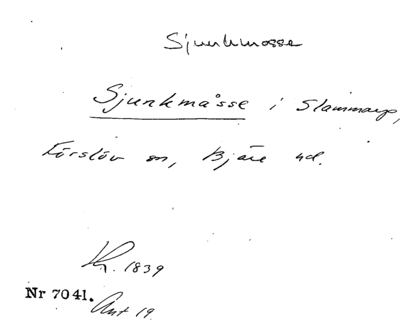 Sjunkmosse
Sjunkmåsse i Slammarp,
Förslöv sn, Bjäre hd.
Kr. 1839
Nr 7041. Ant 19